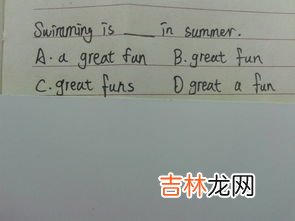 Swimming is ____ in summer.
A. a great fun B. great fun
C. great funs D great a fun
吉林龙网